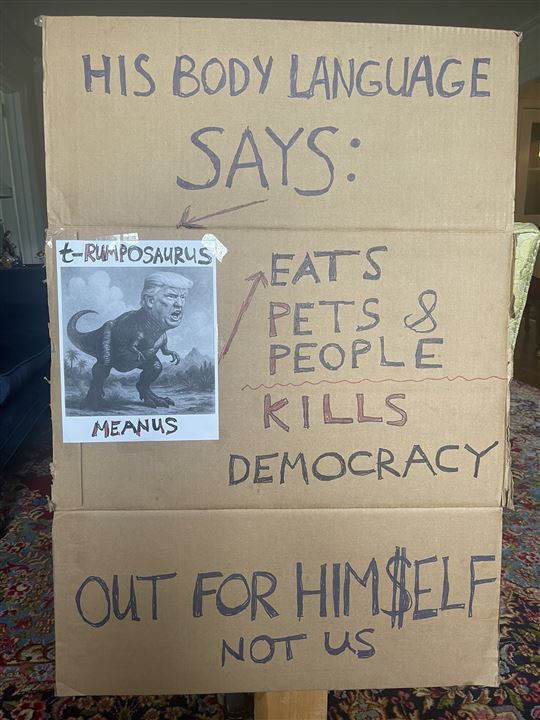 HIS BODY LANGUAGE
SAYS:
t-RUMPOSAURUS
MEANUS
EATS
PETS &
PEOPLE
KILLS
DEMOCRACY
OUT FOR HIM$ELF
NOT US